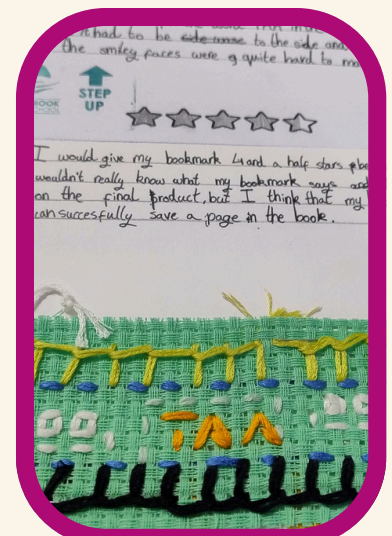 it had to be side to the side and
the smiley faces were q quite hard to m
BROOK
SCHOOL
STEP
UP
I would give my bookmark 4 and a half stars
wouldn't really know what my bookmark says and
on the final product, but I think that my
can succesfully save a page in the book.
TAA